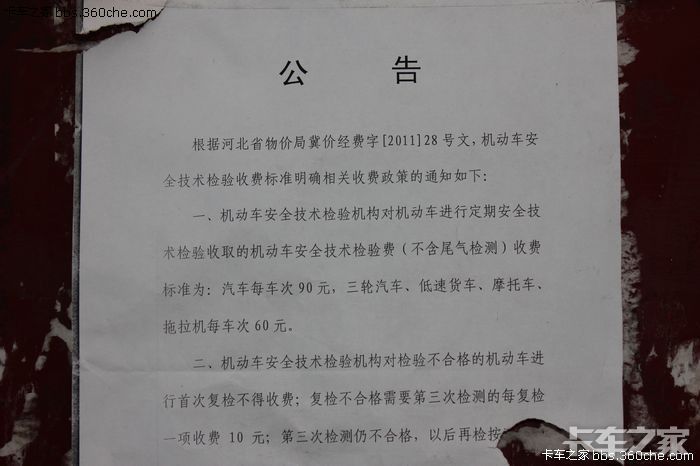 卡车之家 bbs.360che.com
公 告
根据河北省物价局冀价经费字[2011]28号文，机动车安
全技术检验收费标准明确相关收费政策的通知如下：
一、机动车安全技术检验机构对机动车进行定期安全技
术检验收取的机动车安全技术检验费（不含尾气检测）收费
标准为：汽车每车次 90 元，三轮汽车、低速货车、摩托车、
拖拉机每车次 60 元。
二、机动车安全技术检验机构对检验不合格的机动车进
行首次复检不得收费；复检不合格需要第三次检测的每复检
一项收费 10 元；第三次检测仍不合格，以后再检按
卡车之家
卡车之家 bbs.360che.com